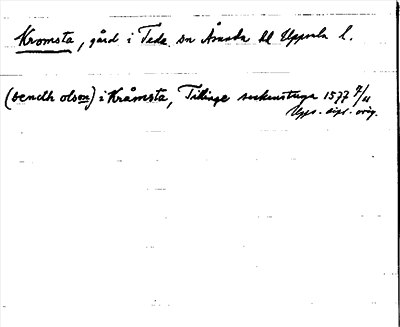 Kromsta, gård i Teda sn Åsunda hd Uppsala l.
(bendh olson) i Kråmsta, Tillinge sockenstuga 1577 7/11
Upps. dipl. orig.